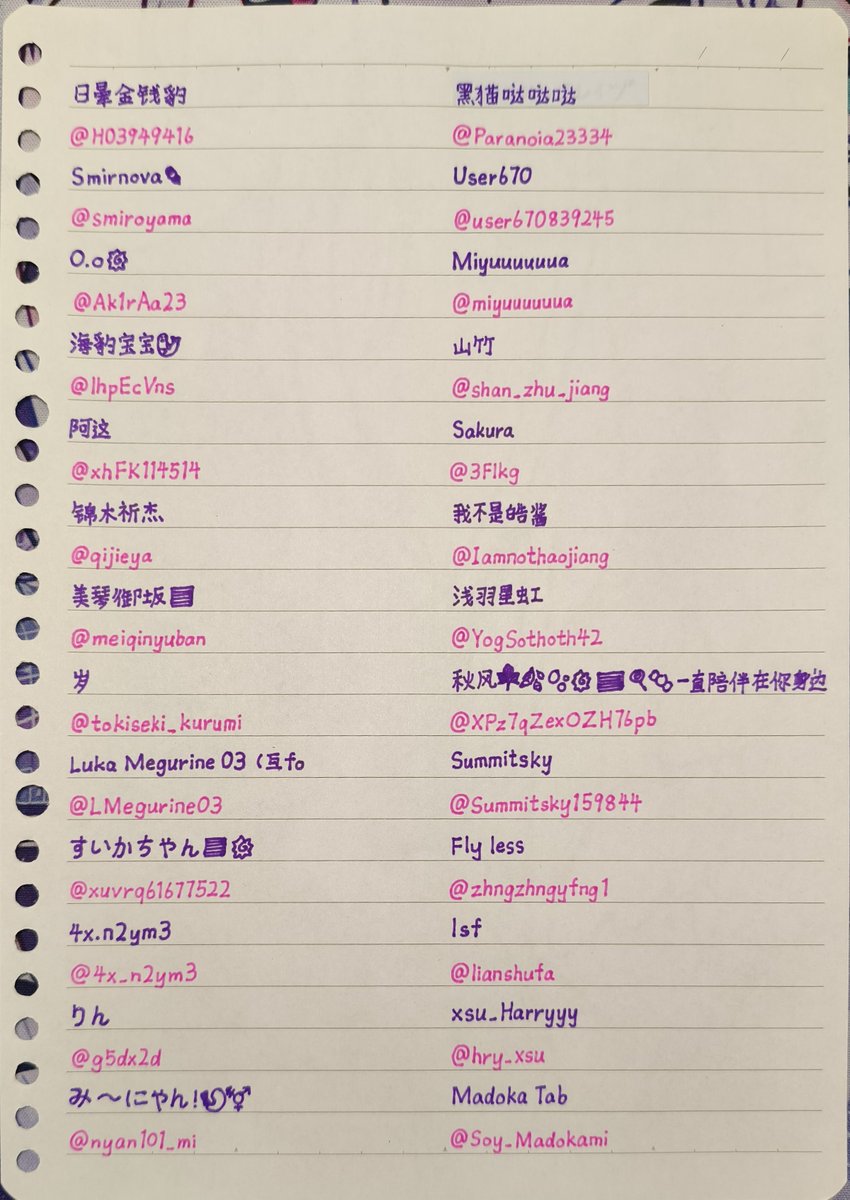 日暈金钱豹
@H03949416
Smirnova💊
@smiroyama
O.o
@Ak1rAa23
海豹宝宝
@lhpEcVns
阿这
@xhFK114514
锦木祈杰
@qijieya
美琴御坂
@meiqinyuban
岁
@tokiseki_kurumi
Luka Megurine 03 (互fo
@LMegurine03
すいかちゃん
@xuvrq61677522
4x.n2ym3
@4x_n2ym3
りん
@g5dx2d
み〜にゃん!
@nyan101_mi
黑猫哒哒哒
@Paranoia23334
User670
@user670839245
Miyuuuuuua
@miyuuuuuua
山竹
@shan_zhu_jiang
Sakura
@3Flkg
我不是皓酱
@Iamnothaojiang
浅羽星虹
@YogSothoth42
秋风一直陪伴在你身边
@XPz7qZexOZH76pb
Summitsky
@Summitsky159844
Fly less
@zhngzhngyfng1
lsf
@lianshufa
xsu_Harryyy
@hry_xsu
Madoka Tab
@Soy_Madokami